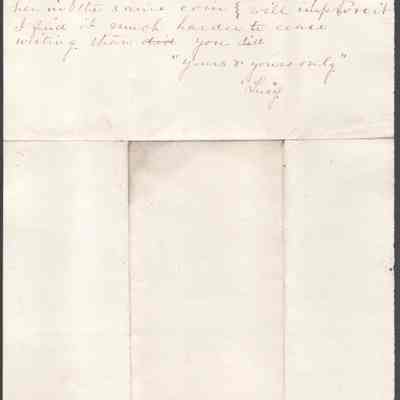 her in the same coin & will improve it
I find it much harder to cease
writing than did you did
"yours & yours only"
Lucy